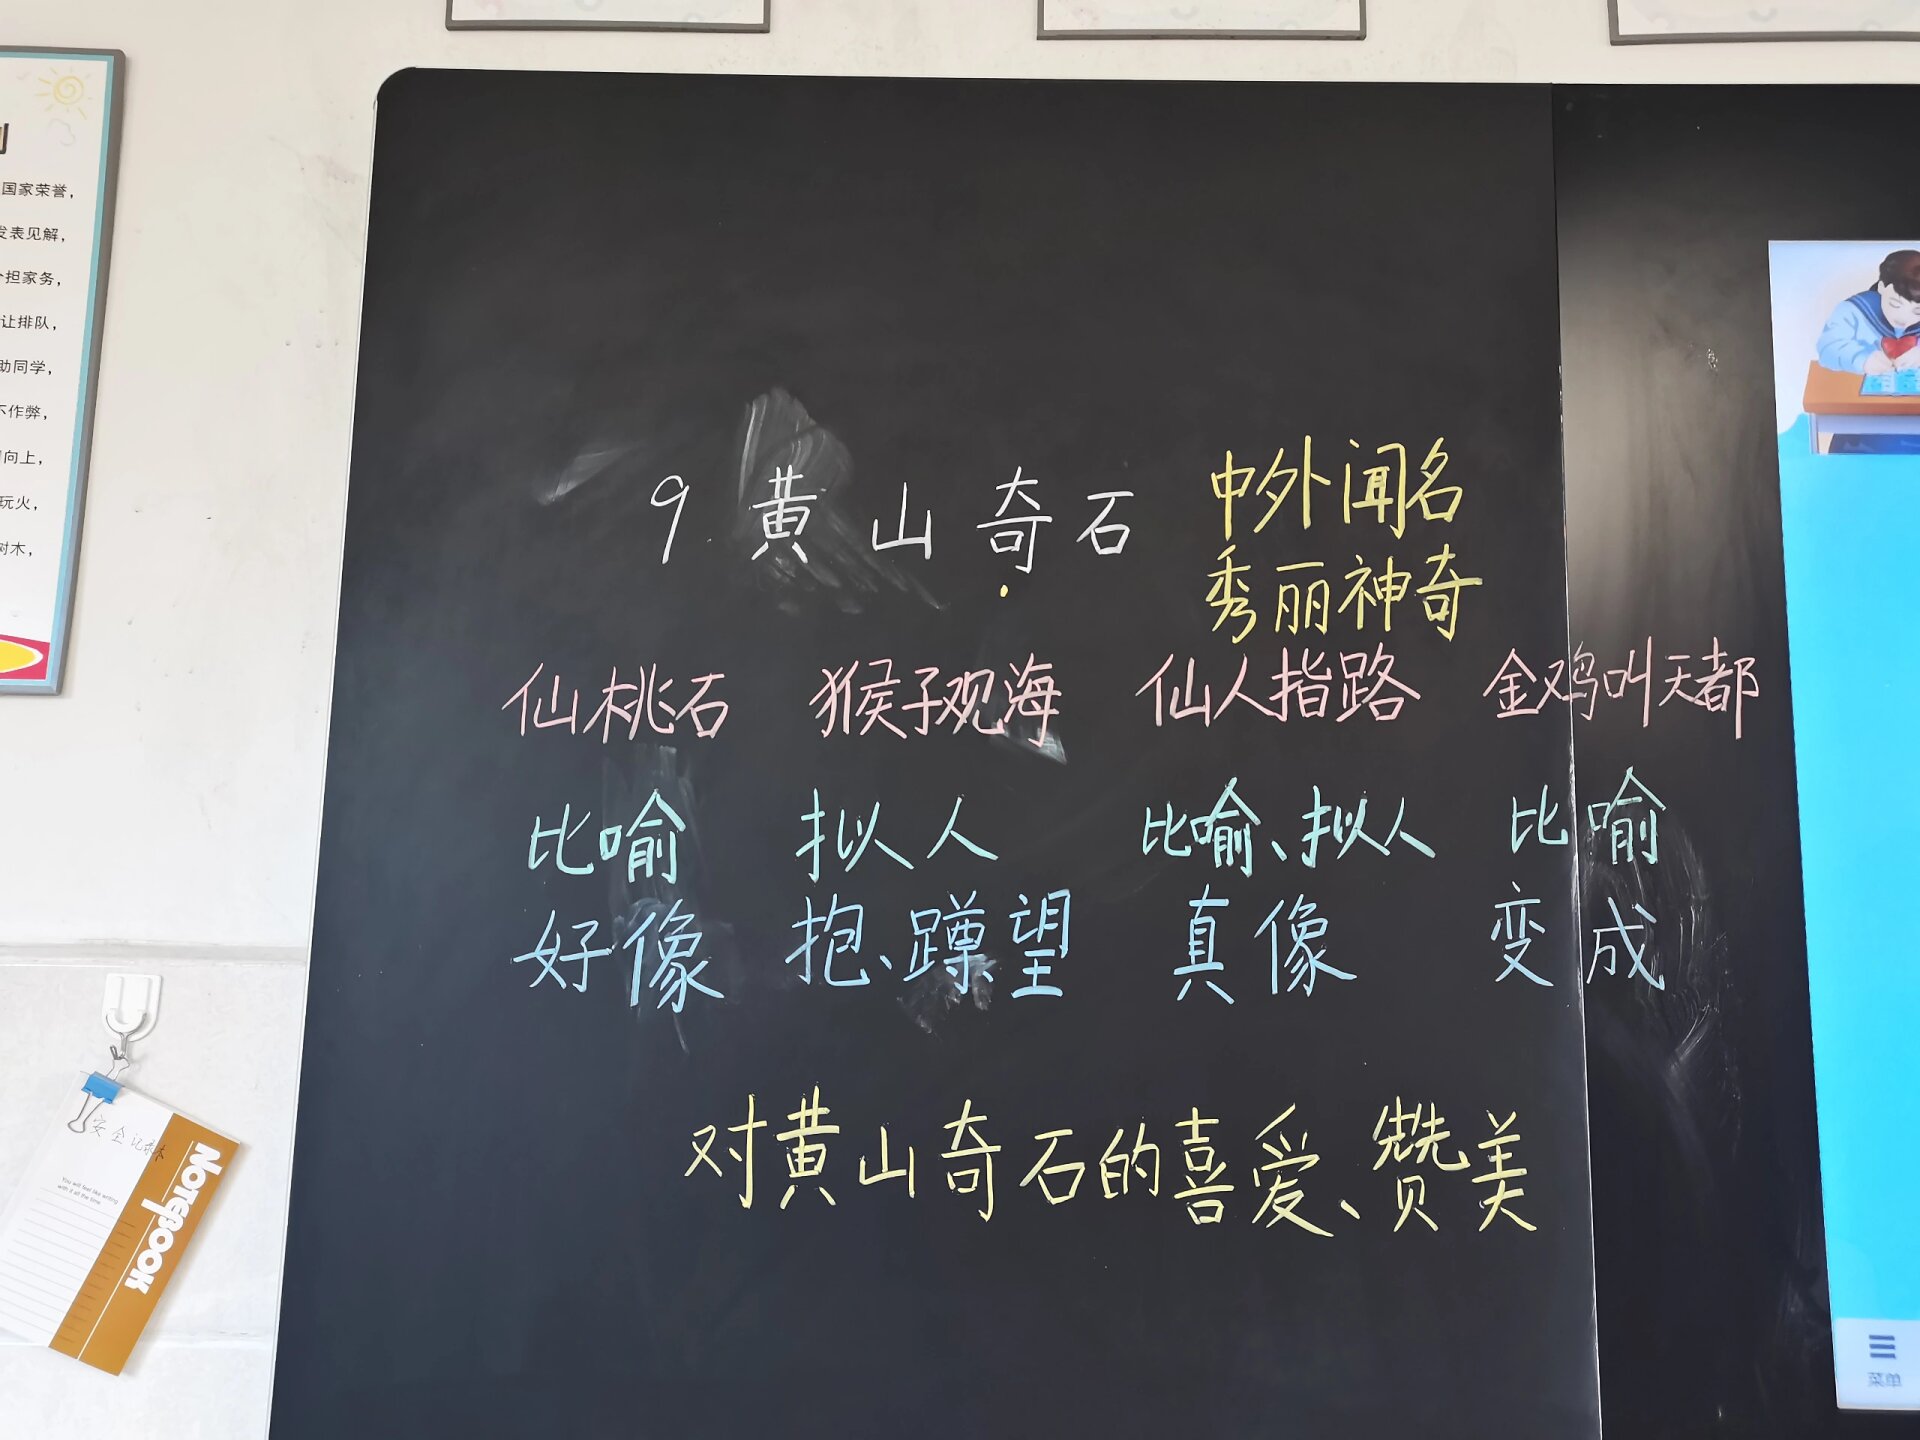 国家荣誉，
发表见解，
分担家务，
让排队，
助同学，
不作弊，
向上，
玩火，
树木，
9 黄山奇石
中外闻名
秀丽神奇
仙桃石 猴子观海 仙人指路 金鸡叫天都
比喻 拟人 比喻、拟人 比喻
好像 抱、蹲、望 真像 变成
对黄山奇石的喜爱、赞美
安全记录本
Notepook
You will feel like writing
with it all the time.
菜单